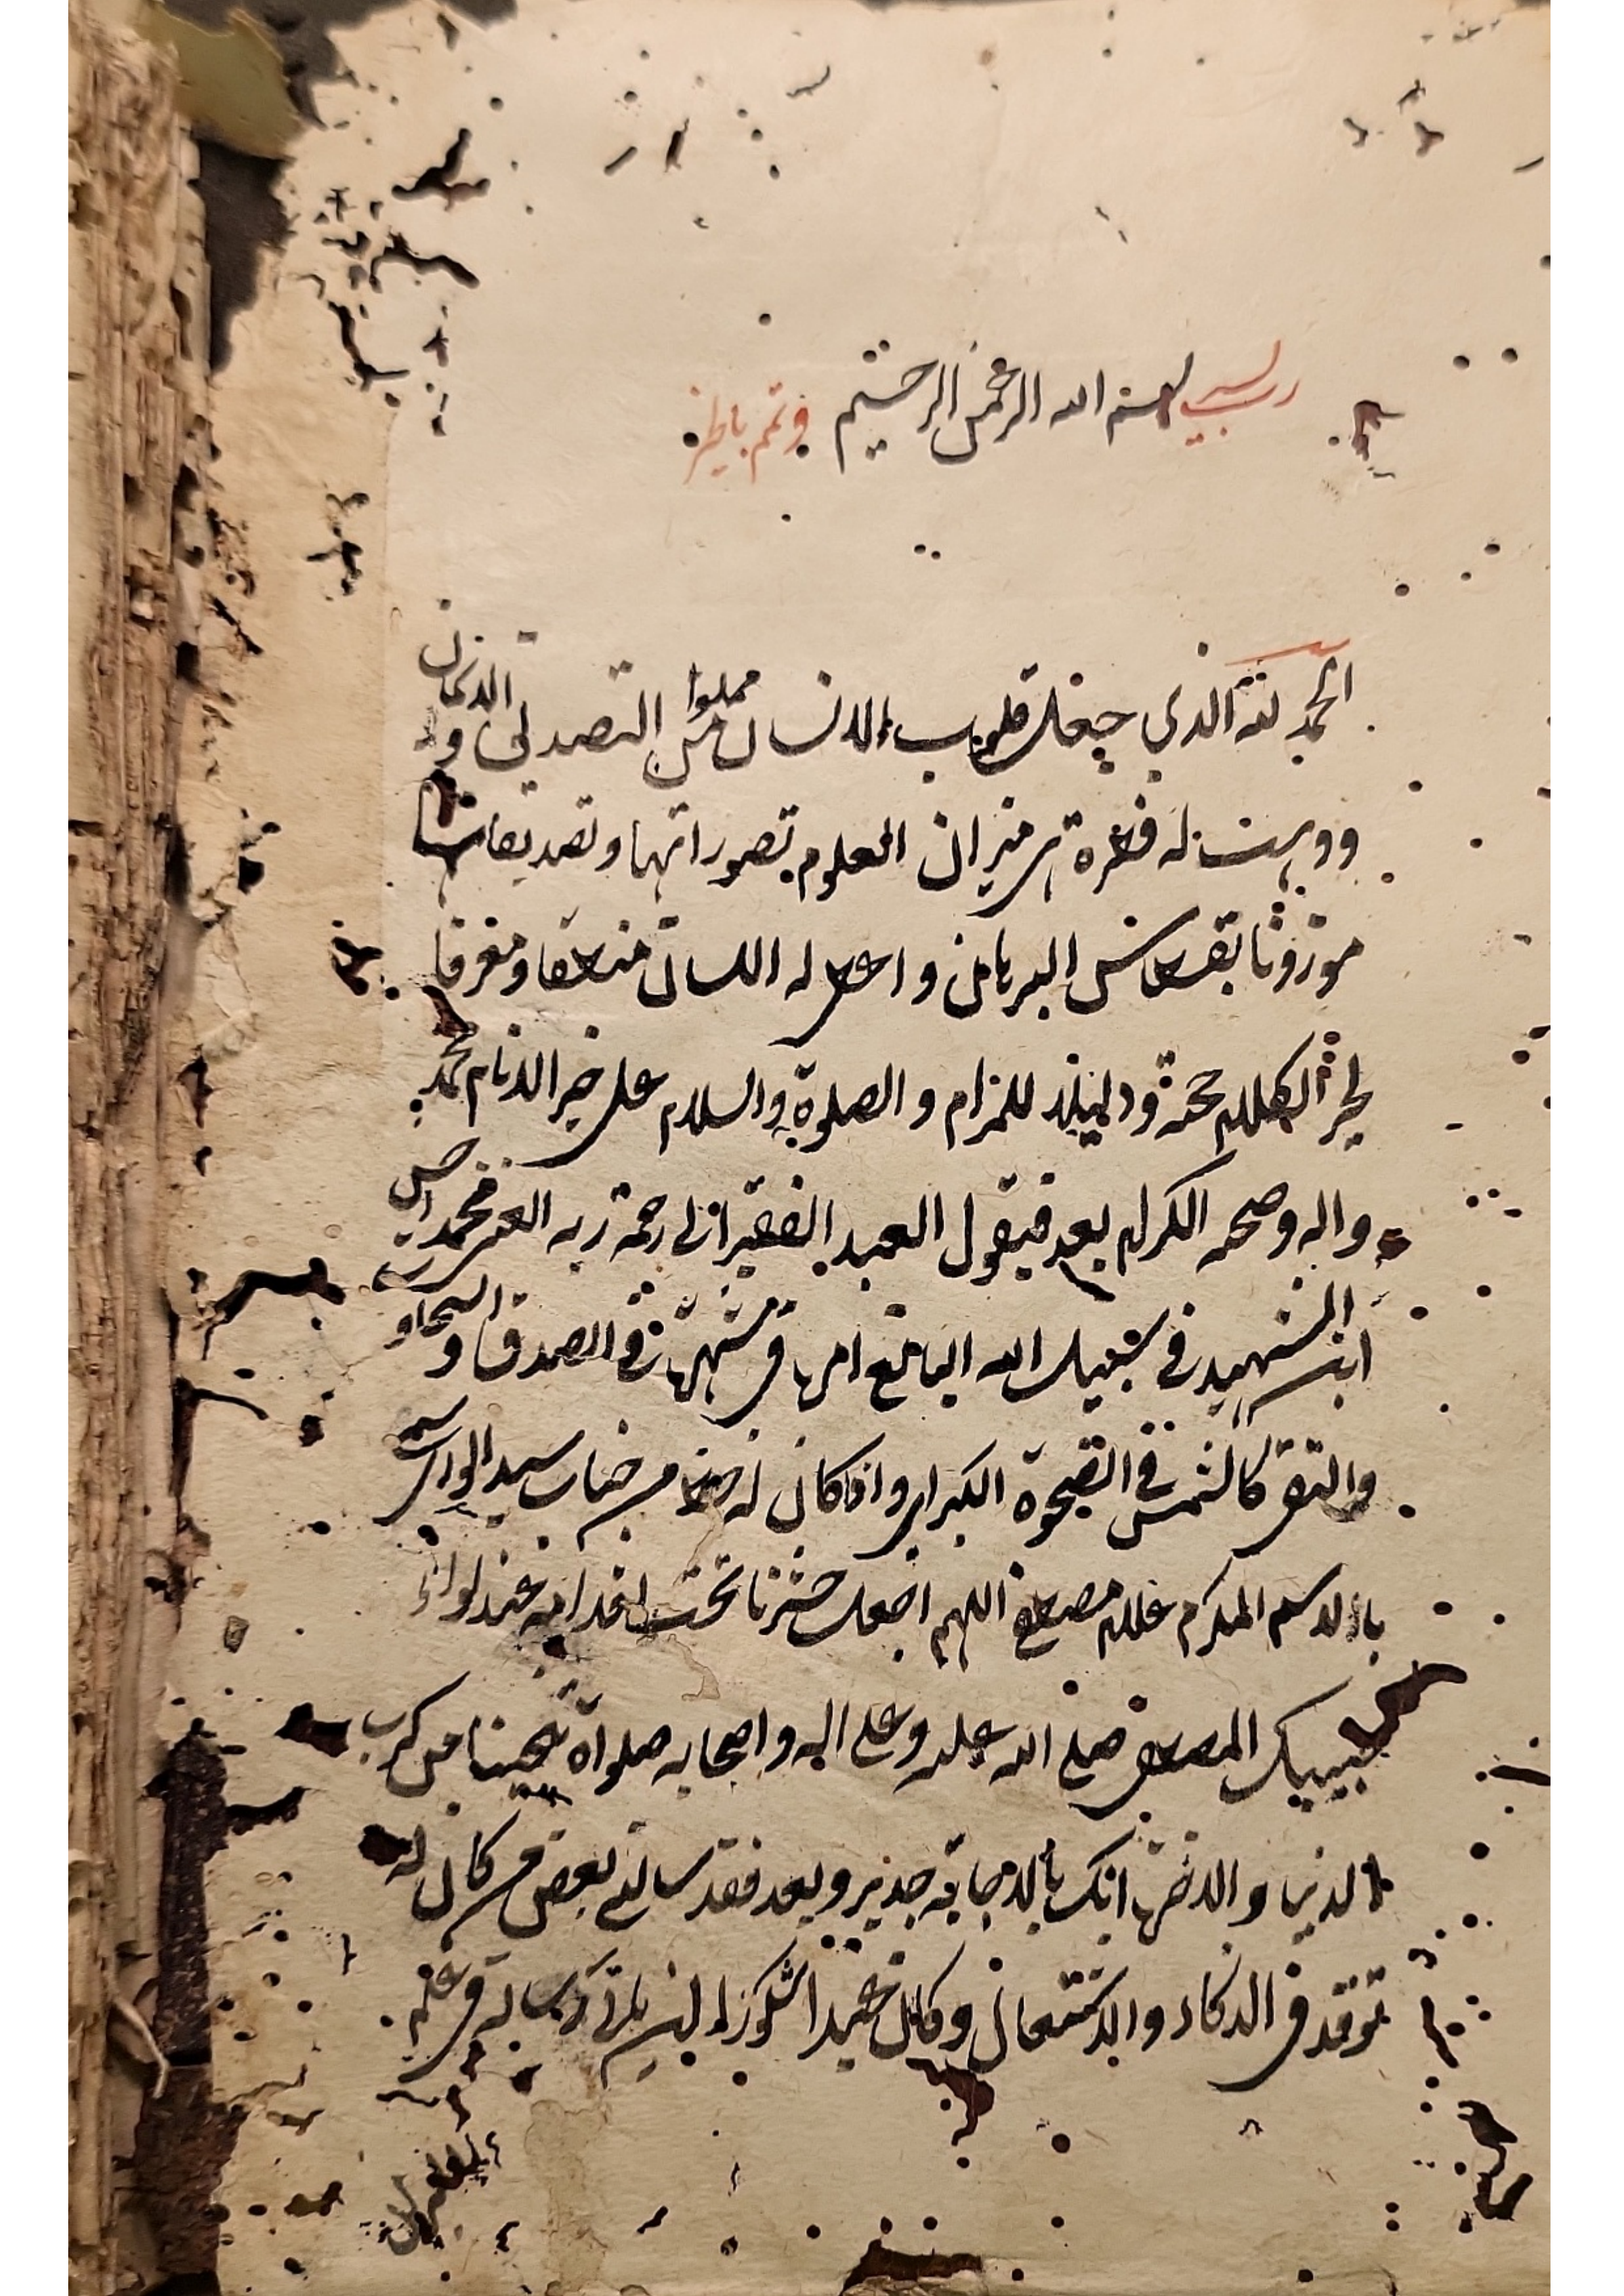 رب يسر بسم الله الرحمن الرحيم وتمم بالخير
الحمد لله الذي جعل قلوب الانسان مملوا من التصديق و الاذعان
ووهبت له فطرة هي ميزان العلوم تصوراتها وتصديقاتها
موزونا بقسطاس البرهان و اعطى له اللسان منطقا ومعرفا
الكلام حجة ودليلا للمرام والصلوة والسلام على خير الانام محمد
واله وصحبه الكرام بعد فيقول العبد الفقير الى رحمة ربه الغني محمد
ابن الشهيد في سبيل الله البالغ امره في شهرته في الصدق و السخاو
والتقى كالشمس في الضحوة الكبرى واذا كان له من جناب سيد
بالاسم المكرم غلام مصطفى اللهم اجعل حشرنا تحت اقدامه عند لواء
حبيبك المصطفى صلى الله عليه وعلى اله واصحابه صلواة تنجينا من كرب
الدنيا والاخرة انك بالاجابة جدير وبعد فقد سالني بعض من كان له
توقد في الذكاء والاشتعال وكان رسالة في علم